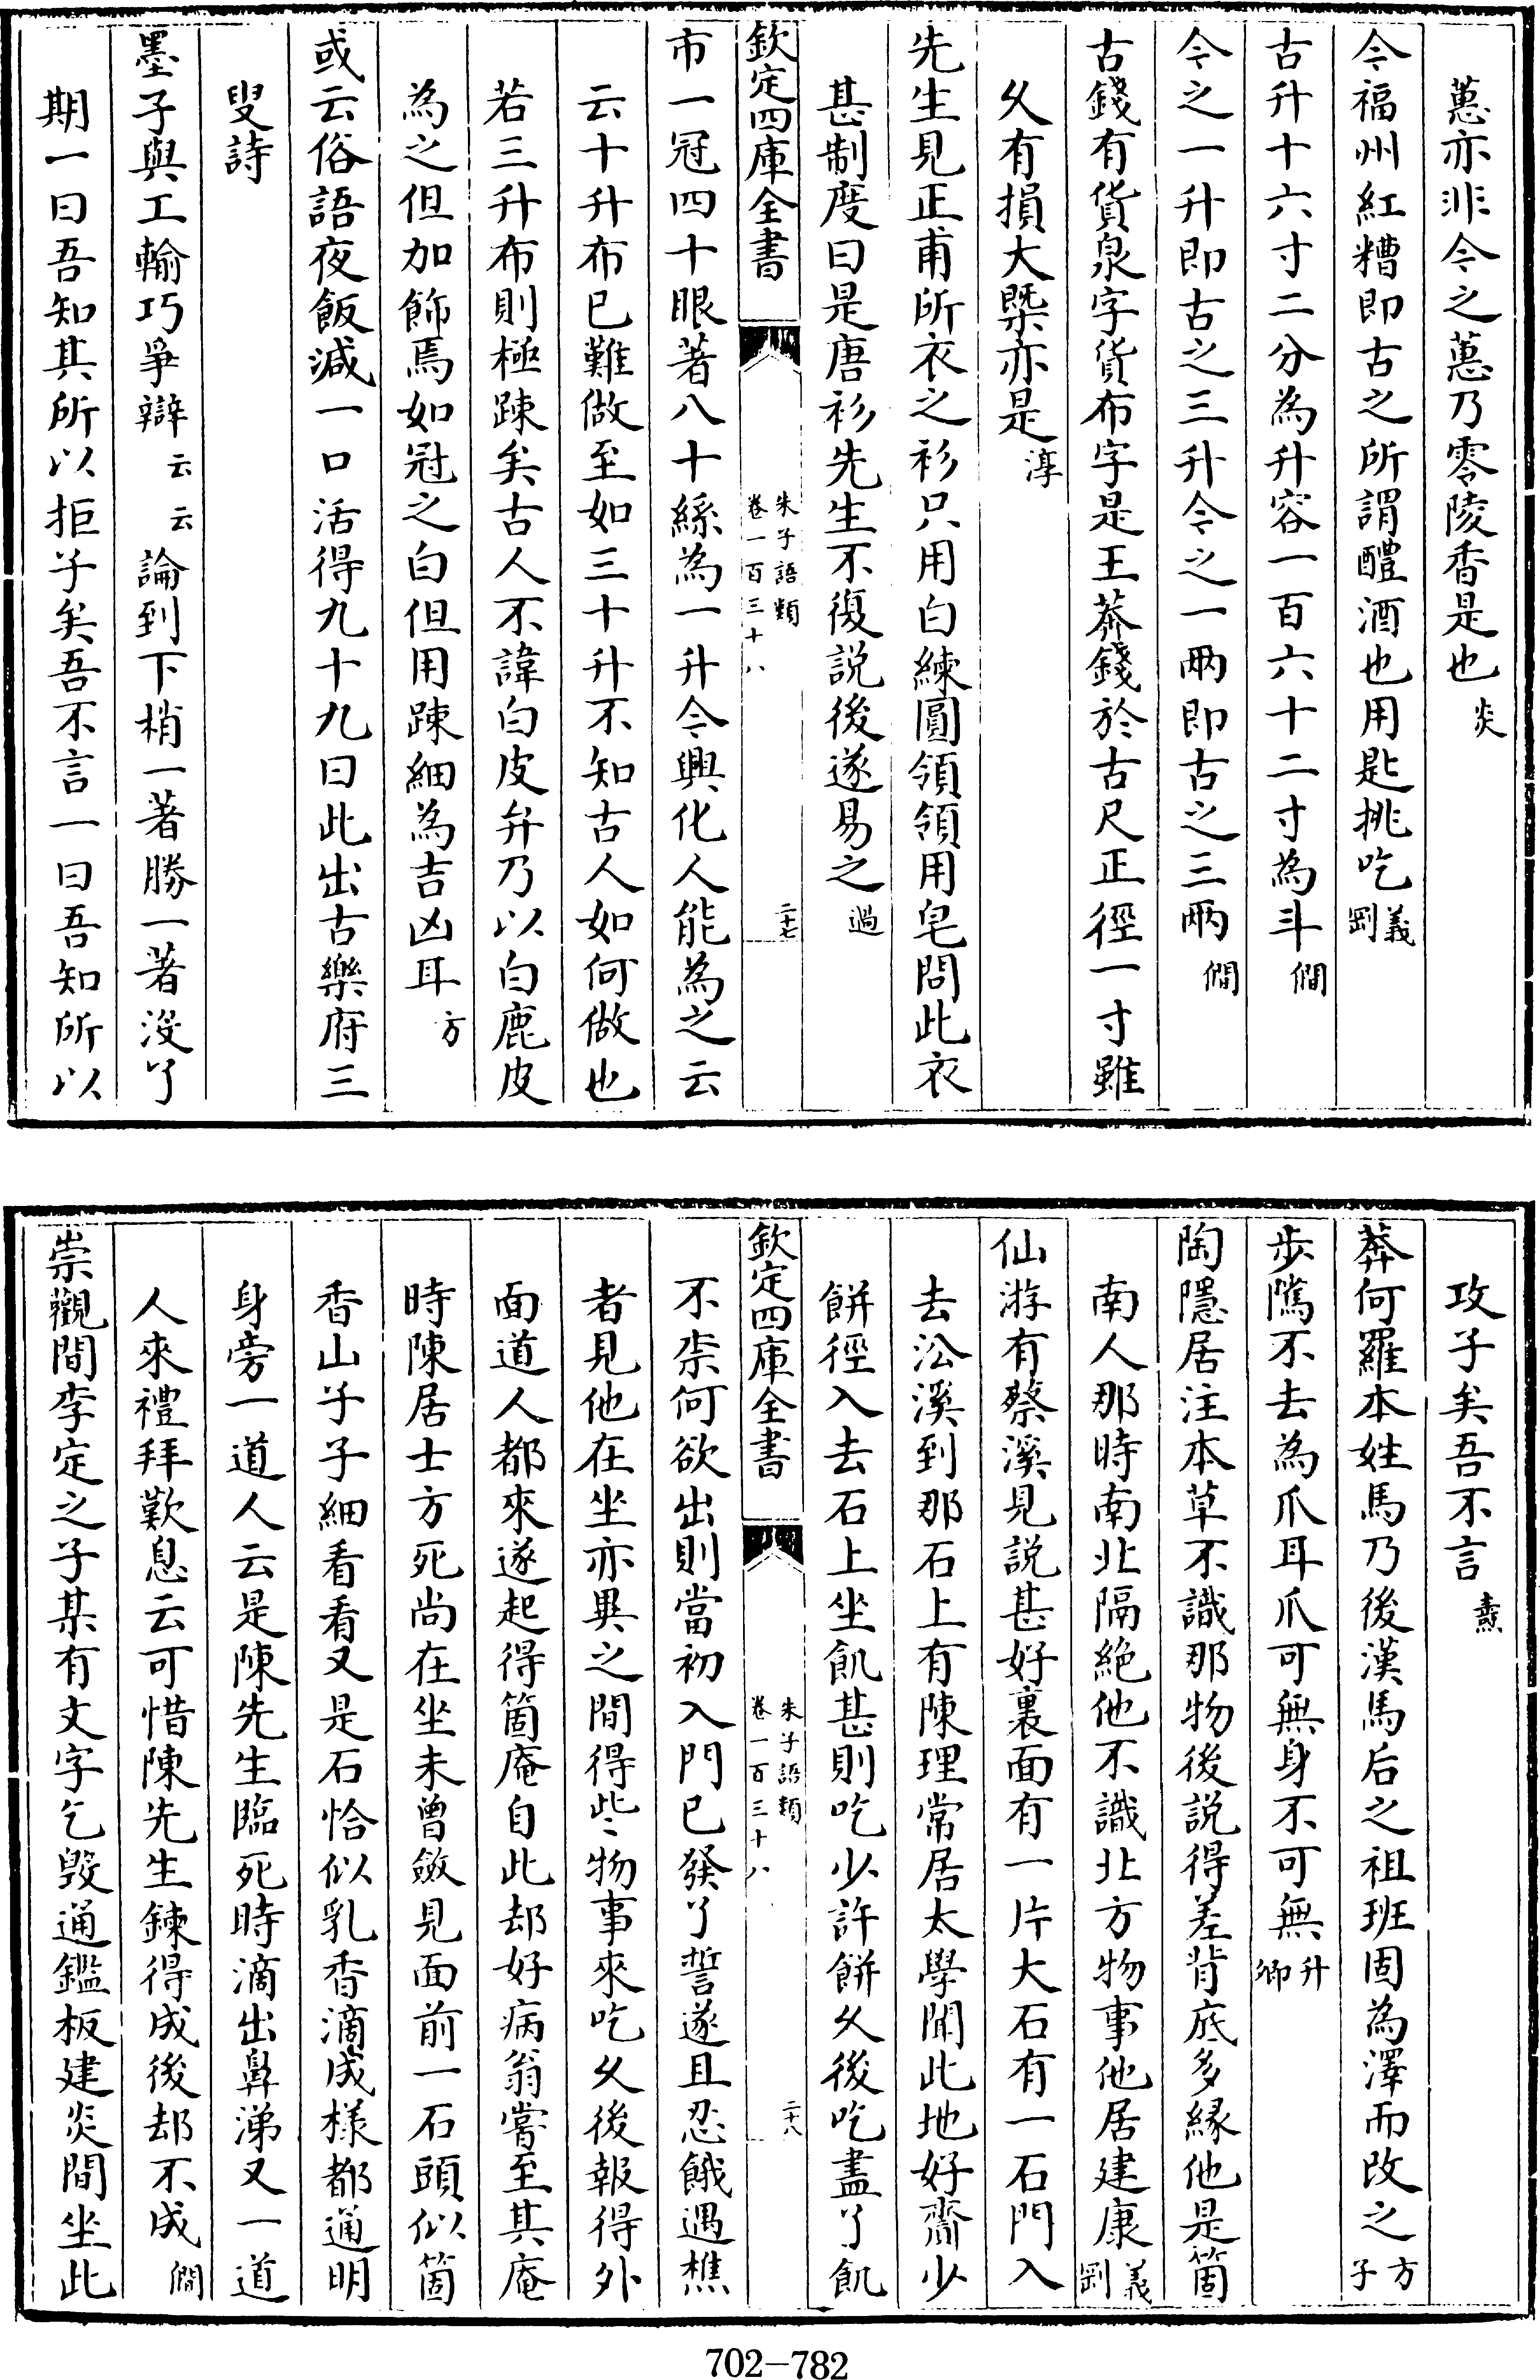 蕙亦非今之蕙乃零陵香是也炎
今福州紅糟即古之所謂醴酒也用匙挑吃義剛
古升十六寸二分為升容一百六十二寸為斗僩
今之一升即古之三升今之一兩即古之三兩僩
古錢有貨泉字貨布字是王莽錢於古尺正徑一寸雖
乆有損大槩亦是淳
先生見正甫所衣之衫只用白練圓領領用皂問此衣
甚制度曰是唐衫先生不復説後遂易之過
欽定四庫全書
朱子語類
卷一百三十八
二十七
市一冠四十眼著八十絲為一升今興化人能為之云
云十升布已難做至如三十升不知古人如何做也
若三升布則極踈矣古人不諱白皮弁乃以白鹿皮
為之但加飾焉如冠之白但用踈細為吉凶耳方
或云俗語夜飯減一口活得九十九曰此出古樂府三
叟詩
墨子與工輸巧爭辯云云論到下梢一著勝一著没了
期一曰吾知其所以拒子矣吾不言一曰吾知所以
攻子矣吾不言燾
莽何羅本姓馬乃後漢馬后之祖班固為澤而改之方子
步隲不去為爪耳爪可無身不可無升卿
陶隱居注本草不識那物後説得差背底多緣他是箇
南人那時南北隔絶他不識北方物事他居建康義剛
仙游有蔡溪見説甚好裏面有一片大石有一石門入
去㳂溪到那石上有陳理常居太學聞此地好齋少
餅徑入去石上坐飢甚則吃少許餅乆後吃盡了飢
欽定四庫全書
朱子語類
卷一百三十八
二十八
不柰何欲出則當初入門已發了誓遂且忍餓遇樵
者見他在坐亦異之間得些物事來吃乆後報得外
面道人都來遂起得箇庵自此却好病翁嘗至其庵
時陳居士方死尚在坐未曾斂見面前一石頭似箇
香山子子細看看又是石恰似乳香滴成樣都通明
身旁一道人云是陳先生臨死時滴出鼻涕又一道
人來禮拜歎息云可惜陳先生鍊得成後却不成僩
崇觀間李定之子某有文字乞毁通鑑板建炎間坐此
702-782